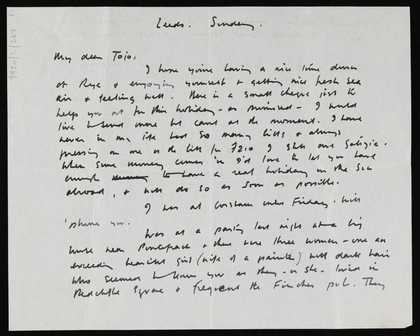 Leeds. Sunday.
My dear Tojo,
I hope you're having a nice time down
at Rye & enjoying yourself & getting nice fresh sea
air & feeling well. Here is a small cheque just to
help you out for this holiday - as promised - I would
like to send more but cannot at the moment. I have
never in my life had so many bills & always
pressing on me is the bill for £210 I still owe
When some money comes in I'd love to let you have
enough to have a real holiday in the sun
abroad, & will do so as soon as possible.
I was at Corsham until Friday. Will
'phone you.
Was at a party last night at a big
house near Pontefract & there were three women - one an
exceeding beautiful girl (wife of a painter) with dark hair
who seemed to know you as they - or she - lived in
Redcliffe Square & frequent the Finches pub. They